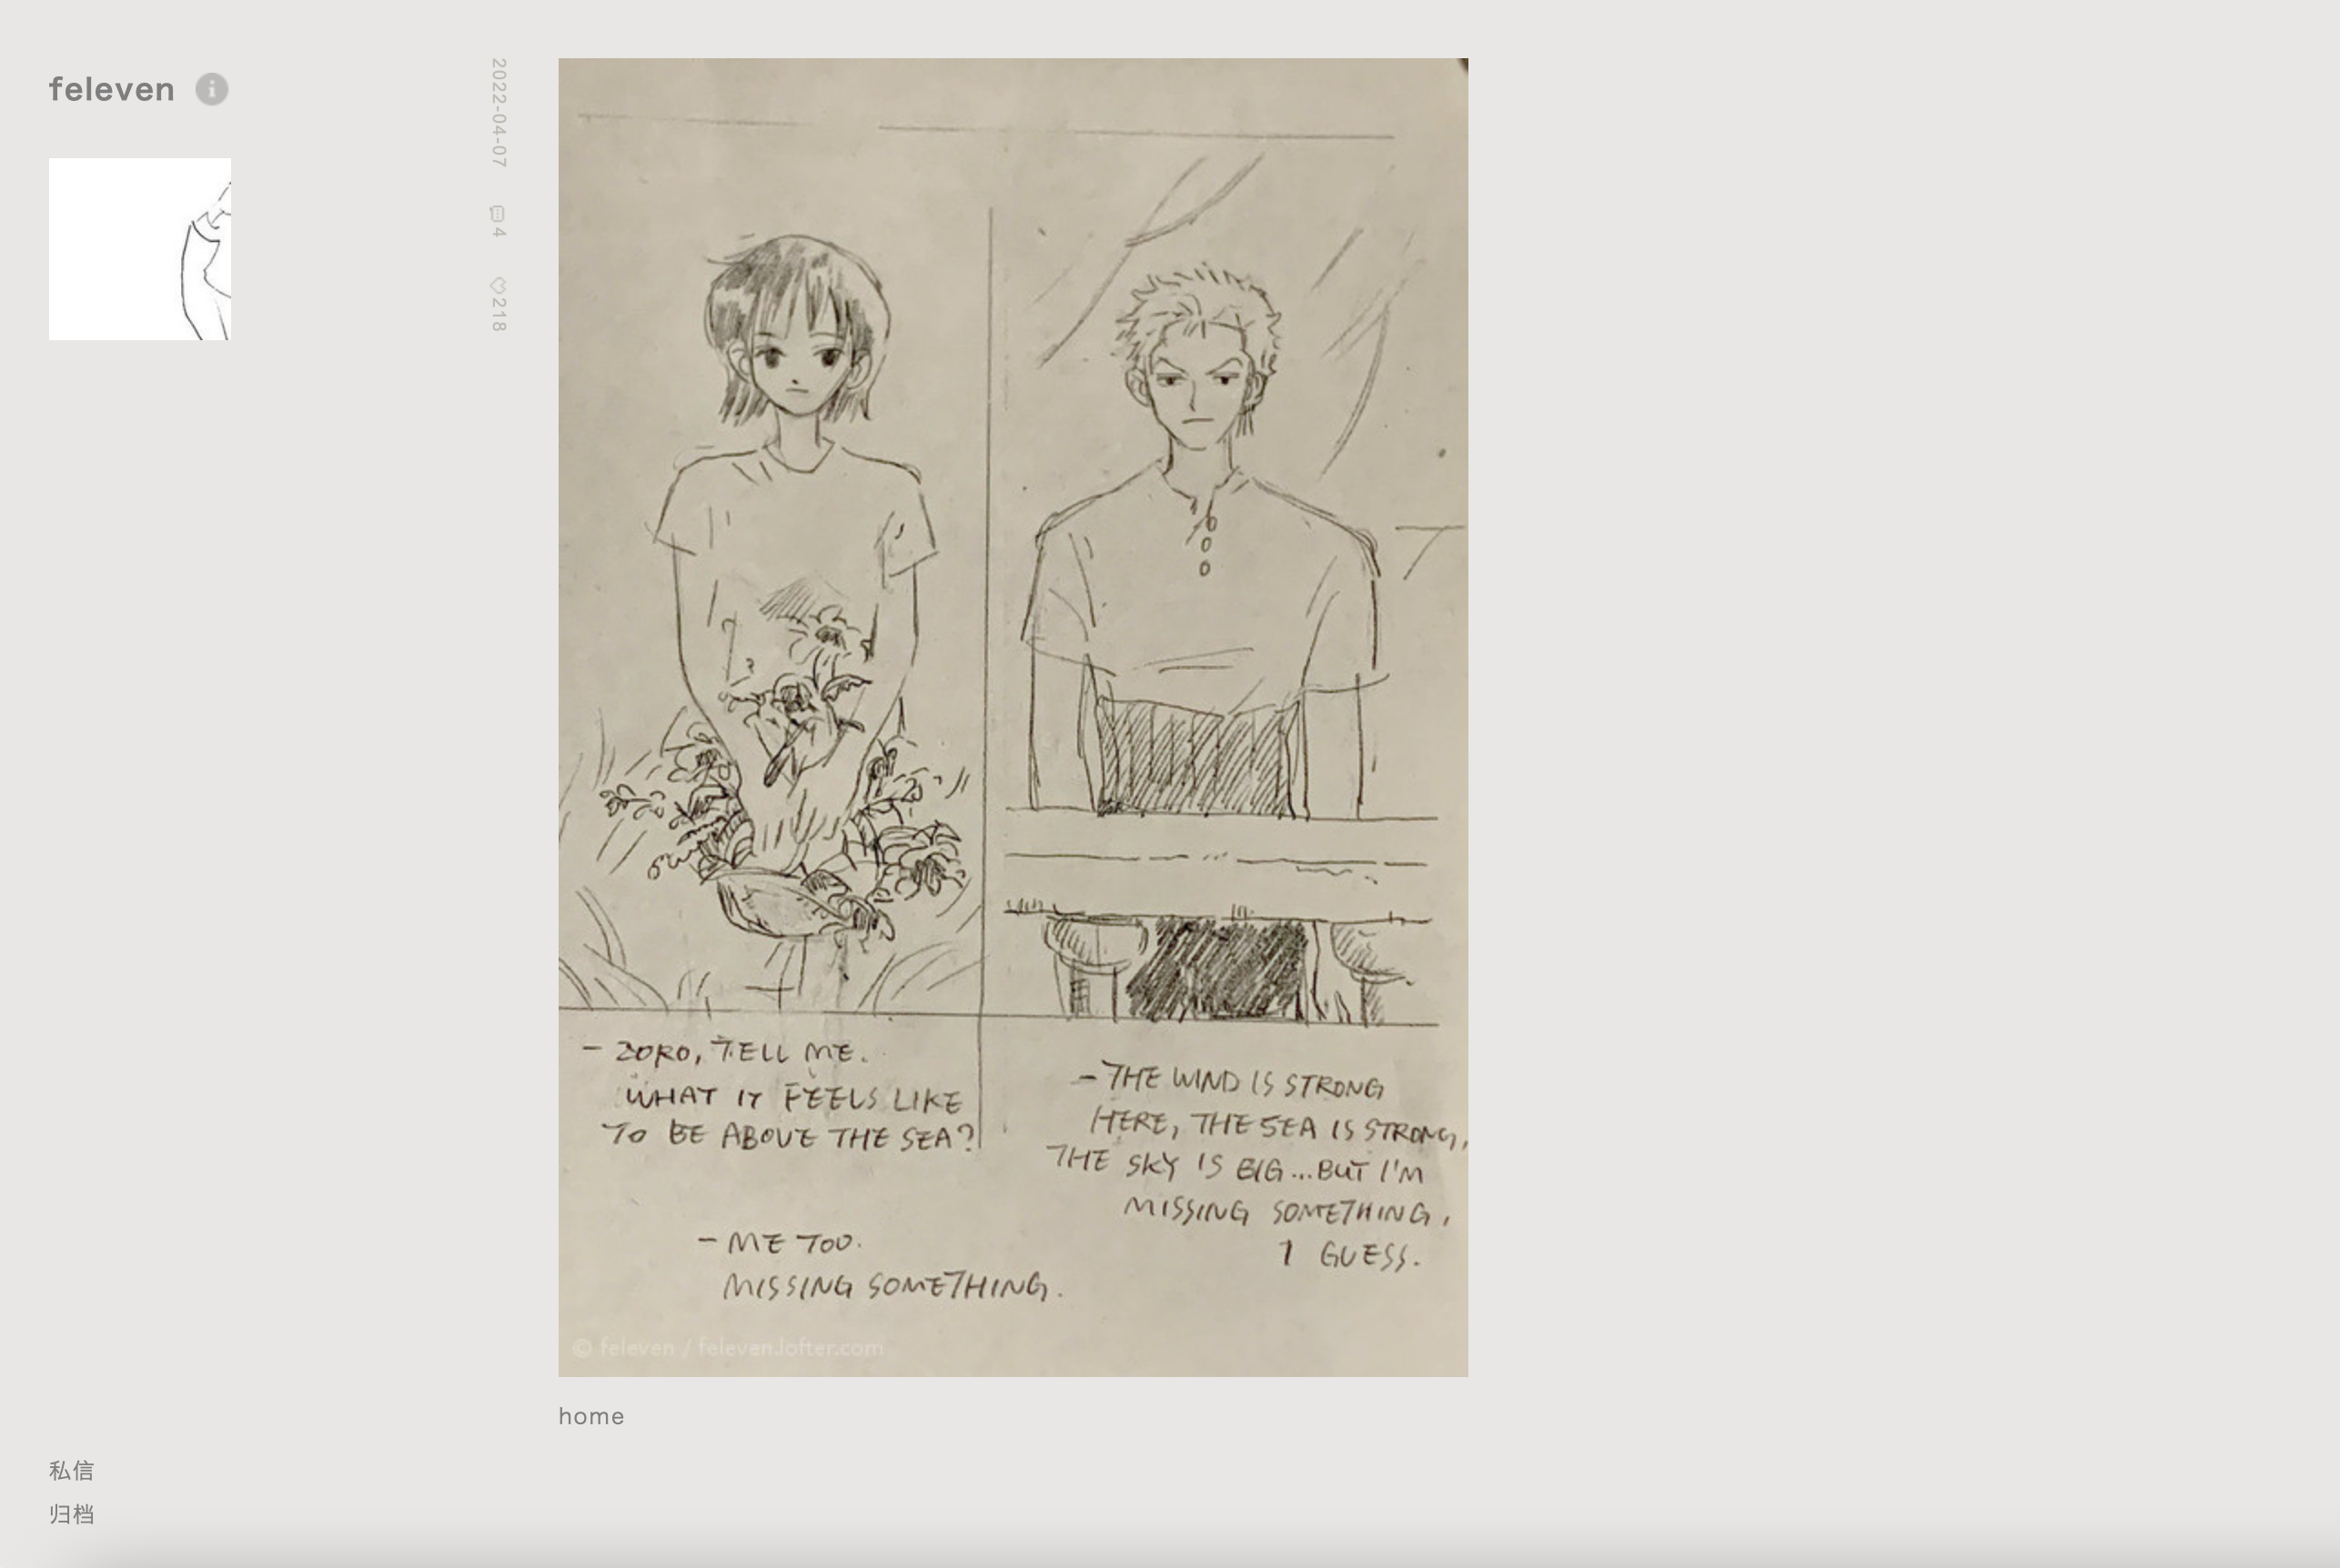 feleven
2022-04-07
4
218
- ZORO, TELL ME.
WHAT IT FEELS LIKE
TO BE ABOVE THE SEA?
- THE WIND IS STRONG
HERE, THE SEA IS STRONG,
THE SKY IS BIG...BUT I'M
MISSING SOMETHING,
I GUESS.
- ME TOO.
MISSING SOMETHING.
© feleven / feleven.lofter.com
home
私信
归档